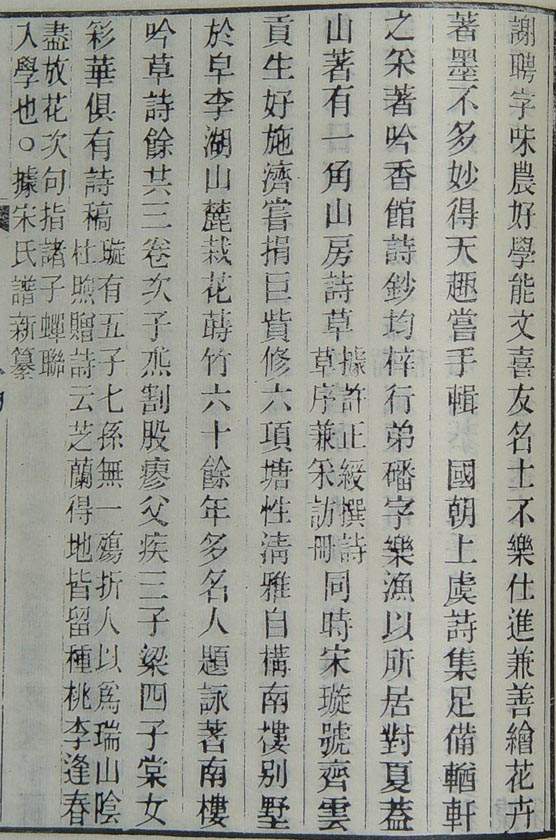 謝聘字味農好學能文喜友名士不樂仕進兼善繪花卉
著墨不多妙得天趣嘗手輯 國朝上虞詩集足備輶軒
之采著吟香館詩鈔均梓行弟磻字樂漁以所居對夏蓋
山著有一角山房詩草據許正綬撰詩草序兼采訪冊同時宋璇號齊雲
貢生好施濟嘗捐巨貲修六項塘性清雅自構南樓別墅
於皁李湖山麓栽花蒔竹六十餘年多名人題詠著南樓
吟草詩餘共三卷次子割股療父疾三子梁四子棠女
彩華俱有詩稿璇有五子七孫無一殤折人以爲瑞山陰
杜煦贈詩云芝蘭得地皆留種桃李逢春
盡放花次句指諸子蟬聯
入學也○據宋氏譜新纂